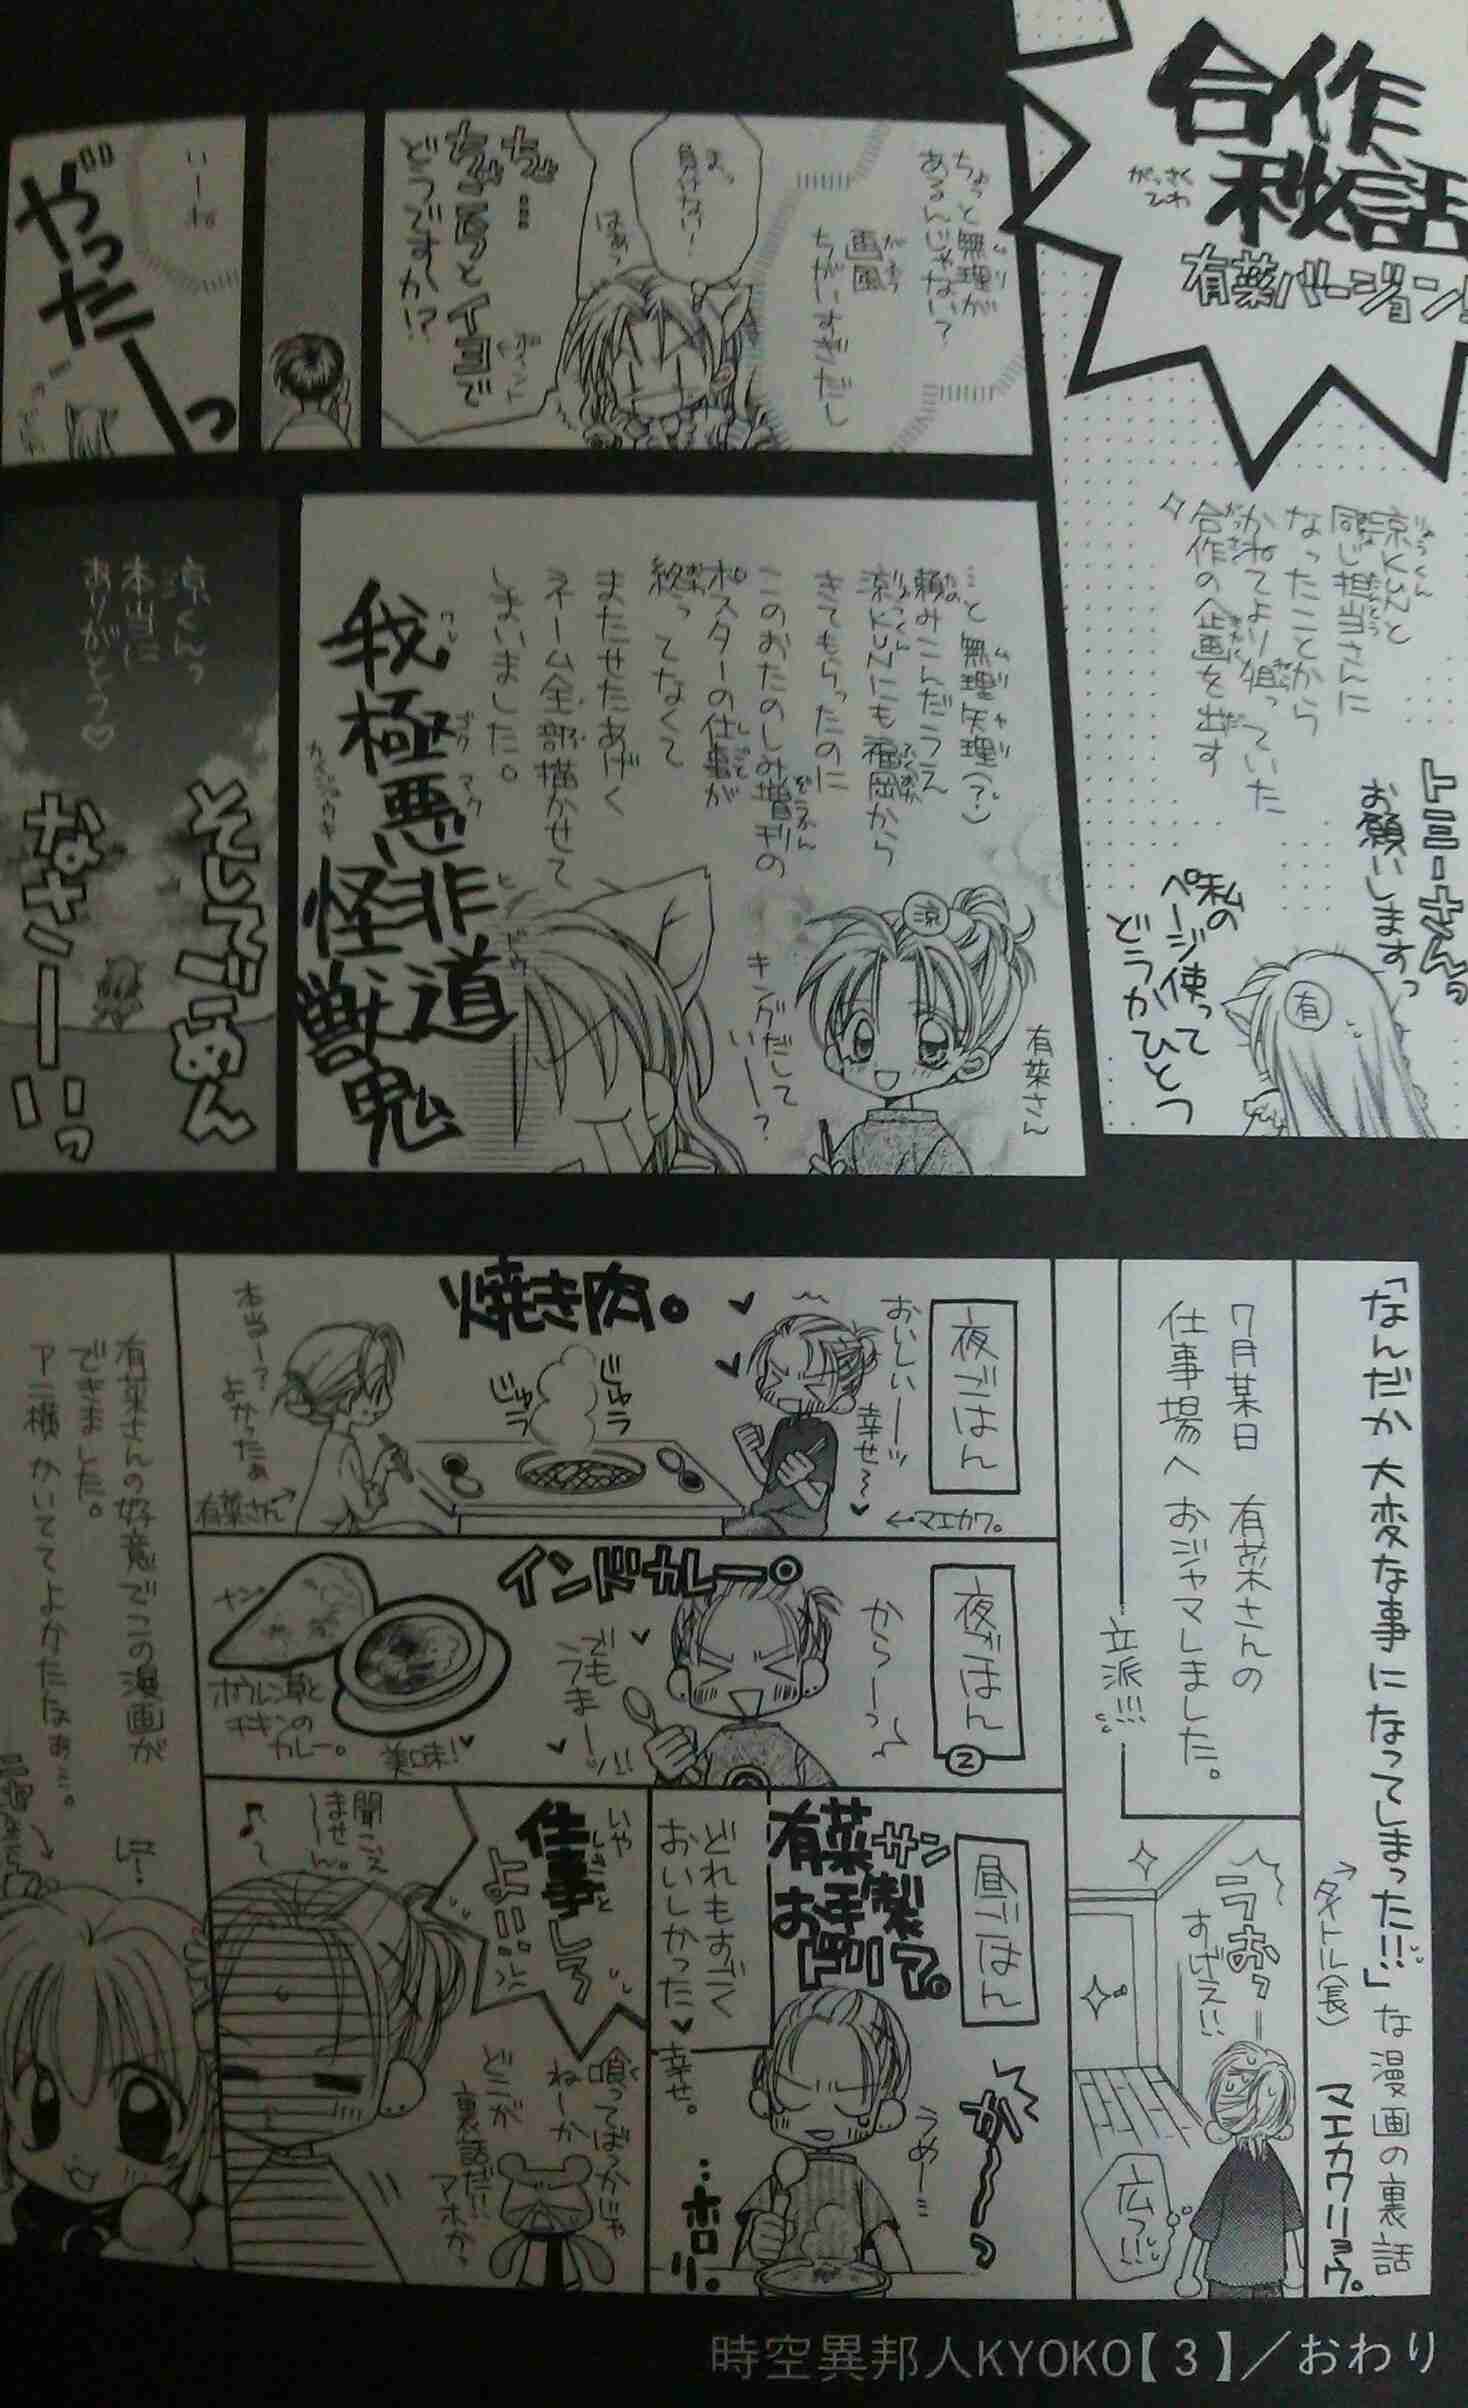 合作
秘話
がっさく
ひわ
有菜バージョン!
涼KUNと
同じ担当さんに
なったことから
かねてより狙っていた
合作の企画を出す
トミーさんっ
お願いしますっ
私の
ページ使って
どうかひとつ
有
ちょっと無理が
あるんじゃない?
画風
ちがいすぎだし
まっ
負けない!
はぁっ
ちょ…
ちょこっとイヨで
どうですか!?
いーね
やったーっ
…と無理矢理(?)
頼みこんだうえ
涼KUNにも福岡から
きてもらったのに
このおたのしみ増刊の
ポスターの仕事が
終ってなくて
またせたあげく
ネーム全部描かせて
しまいました。
有菜さん
涼
キングだして
いー?
我
極悪非道
怪獣鬼
涼くんっ
本当に
ありがとう♡
そしてごめん
なさーいっ
「なんだか大変な事になってしまった!!」な漫画の裏話
タイトル(長)
マエカワリョウ。
7月某日 有菜さんの
仕事場へおジャマしました。
立派!!!
うおッ
すげえ!!
広っ!!
夜ごはん
焼き肉。
おいしいーッ
幸せ〜♥
←マエカワ。
じゅう
じゅう
本当ー?
よかったぁ
有菜さん
夜ごはん
②
インドカレー。
からーっ
でも
うまーッ!!
ナン
ホウレン草と
チキンの
カレー。
美味!
昼ごはん
有菜サン
お手製
ドリア。
うめー
…ホロリ。
どれもすごく
おいしかった♥
幸せ。
いや
仕事しろ
よ…
喰ってばっかじゃ
ねーか
どこが
裏話だ!!
アホか。
聞こえ
ませーん。
♪〜
有菜さんの好意でこの漫画が
できました。
時空異邦人KYOKO【3】/おわり